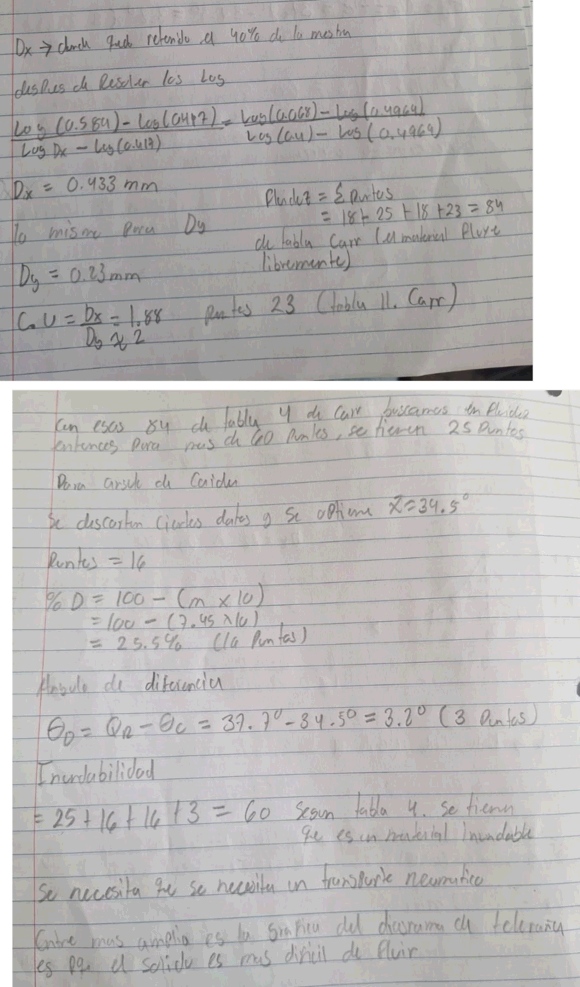 Dx → donde queda retenido el 40% de la mestra
despues de Resolver los Log
Log (0.584) - Log(0.417) = Log(0.068) - Log(0.4964)
Log Dx - Log(0.417) Log(0.4) - Log(0.4964)
Dx = 0.433 mm
Fluidez = Σ Puntos
= 18 + 25 + 18 + 23 = 84
lo mismo Para Dy
de tabla Carr (el material Fluye
libremente)
Dy = 0.23mm
C.U = Dx = 1.88 Puntos 23 (tabla 11. Carr)
Dy ≈ 2
Con esos 84 de tabla 4 de Carr buscamos en Fluidez
entonces Para mas de 60 Puntos, se tienen 25 Puntos
Para angulo de Caida
Se descartan ciertos datos y se optiene x̄ = 34.5°
Puntos = 16
% D = 100 - (m x 10)
= 100 - (7.45 x 10)
= 25.5% (16 Puntos)
Angulo de diferencia
θD = θR - θC = 37.7° - 34.5° = 3.2° (3 Puntos)
Inundabilidad
= 25 + 16 + 16 + 3 = 60 Segun tabla 4. se tiene
qe es un material Inundable
Se necesita qe se necesita un transporte neumatico
Entre mas amplia es la grafica del diagrama de telaraña
es pq. el solido es mas dificil de Fluir